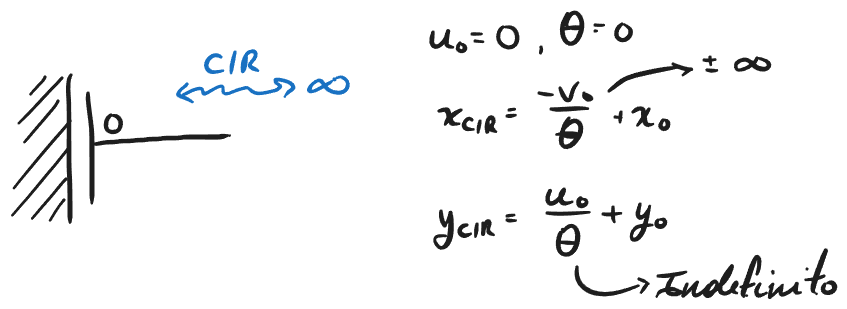 CIR
∞
O
u₀ = 0 , θ = 0
x_CIR = -v₀/θ + x₀ → ± ∞
y_CIR = u₀/θ + y₀
Indefinito